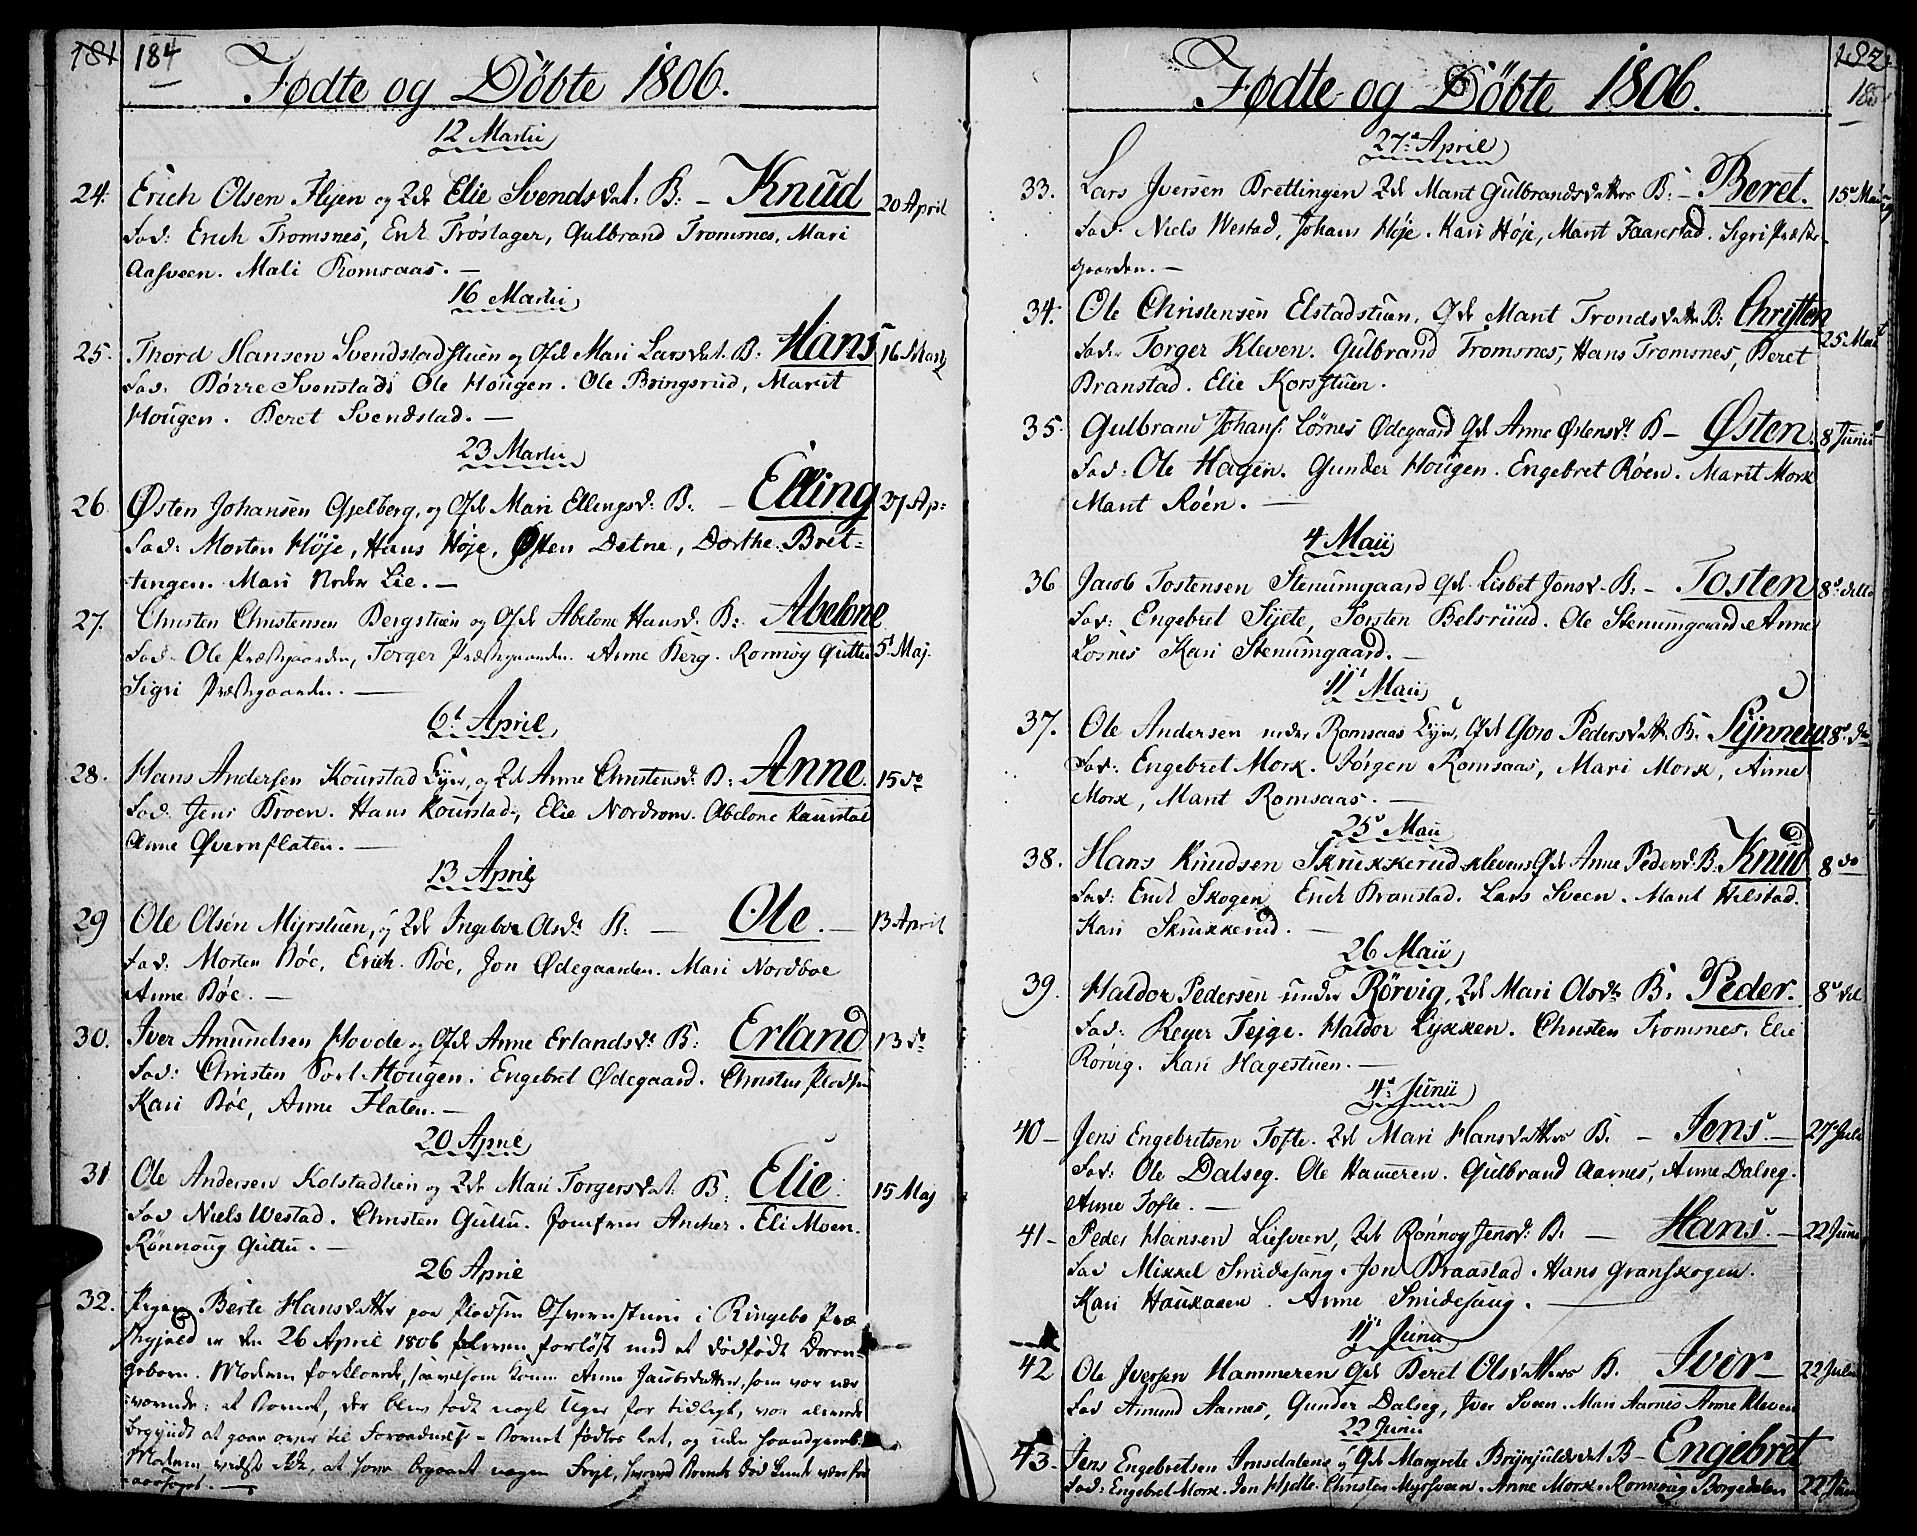 181 184
Fødte og Döbte 1806.
12 Martii
24. Erich Olsen Flyen og 2de Elie Svendsdat. B: – Knud 20 April
Fad: Erich Tromsnes, Erich Fröslager, Gulbrand Tromsnes, Mari
Aasveen. Mali Romsaas. –
16 Martii
25. Thord Hansen Svendstadstuen og Gfde Mari Larsdat. B: Hans 16 Marti
Fad: Börre Svenstad, Ole Hougen. Ole Bringsrud, Marit
Hougen. Beret Svendstad. –
23 Martii
26. Østen Johansen Gjelberg, og Gfde Mari Ellingsd: B. – Elling 27 Ap:
Fad: Morten Höje, Hans Höje, Østen Detne, Dorthe Bret-
tingen. Mari Nedre Lie. –
27. Christen Christensen Bergstuen og Gfde Abelone Hansd: B: Abelone
Fad: Ole Præstgaarden, Torger Præstgaarden. Anne Berg. Ronnog Guttu 5t Maj.
Sigri Præstgaarden. –
6t April
28. Hans Andersen Kourstad Eyer, og 2de Anne Christensd: B: Anne. 15 do
Fad: Jens Broen. Hans Kourstad, Elie Nordrom. Abelone Kaurstad
Anne Qvernflaten. –
13 April
29 Ole Olsen Myrstuen, og 2de Ingebor Olsdr B: – Ole. – 13 April
Fad: Morten Böe, Erich Böe, Jon Ødegaarden. Mari Nordboe
Anne Böe. –
30. Iver Amundsen Hovde og Gfde Anne Erlandsdr B: Erland 13 do
Fad: Christen Hougen. Engebret Ødegaard. Christen
Kari Böe, Anne Flaten. –
20 April
31 Ole Andersen Kolstadlien og 2de Mari Torgersdat. B. Elie. 15 Maj
Fad Niels Westad. Christen Guttu. Jomfrue Ancher. Eli Moen.
Rönnoug Guttu. –
26 April
32. Pigen Berte Hansdatter paa Pladsen i Ringebo Præ
stegjeld er den 26 April 1806 forløst med et dødfødt Dreng
gebarn. Moderen forklarede, saavelsom Anne Jacobsdatter, som var nær
værende: at Barnet, der blev født nogle Uger for tidligt, var allerede
begyndt at gaae over til Forraadnelse – Barnet fødtes let, og uden Haandgreb.
Moderen vidste ikke, at have begaaet nogen Feyl, hvorved Barnets Død kunde være for
aarsaget. –
182
185
Fødte og Döbte 1806.
27de April
33. Lars Iversen Brettingen 2de Marit Gulbrandsdatter B: – Beret. 15de Mai
Fad: Niels Westad, Johans Höje. Kari Höje, Marit Faarestad. Sigri Præste-
gaarden. –
34. Ole Christensen Elstadstuen, Gfde Marit Trondsdatter B: Christen
Fad: Torger Kleven. Gulbrand Tromsnes, Hans Tromsnes, Beret 25 Mai
Branstad. Elie Korsstuen.
35. Gulbrand Johans: Lösnes Ødegaard Gfde Anne Østensdr B – Østen. 8 Junii
Fad: Ole Hagen. Gunder Hougen. Engebret Röen. Marit Mork
Marit Röen. –
4 Maii
36 Jacob Tostensen Stenumgaard Gfde Lisbet Jonsd. B: – Tosten 8de ditto
Fad: Engebret Sylte, Torsten Belsrud. Ole Stenumgaard Anne
Losnes Kari Stenumgaard. –
11t Maii
37. Ole Andersen neder Romsaas Eyer, Gfde Goro Pedersdatter B. Synneve. 8de do
Fad: Engebret Mork. Jörgen Romsaas, Mari Mork, Anne
Mork, Marit Romsaas. –
25de Maii
38. Hans Knudsen Skrukkerud-klevens Gfde Anne Pedersd: B. Knud 8 do
Fad: Erich Skogen, Erich Branstad. Lars Sveen. Marit Hilstad.
Kari Skrukkerud. –
26 Maii
39. Haldor Pedersen under Rörvig, 2de Mari Olsdr B. Peder. 8de dit
Fad: Reyer Tejge. Haldor Lykken. Christen Tromsnes. Elie
Rörvig. Kari Hagestuen. –
4de Junii
40 – Jens Engebretsen Tofte. 2de Mari Hansdatter B. – Jens. – 27 Julii
Fad: Ole Dalseg. Ole Hameren. Gulbrand Aarnes, Anne Dalseg.
Anne Tofte. –
41 – Peder Hansen Liesveen, 2de Rönnog Jensd: B. – Hans. – 22 Junii
Fad Mikkel Smidesang. Jon Braastad. Hans Granskogen.
Kari Haukaaen. Anne Smidesang. –
11t Junii
42 Ole Iversen Hammeren Gfde Beret Olsdatter B. Iver – 22 Julii
Fad Amund Aarnes, Gunder Dalseg, Iver Sveen. Mari Aarnes Anne Kleven
22 Junii
43. Jens Engebretsen Arnsdalen og Gfde Margrete Brynjuldsdat B – Engebret
Fad: Engebret Mork. Jon Hjelte. Christen Myrsveen. Anne Mork. Ronnoug Borgedalen 22 Juni